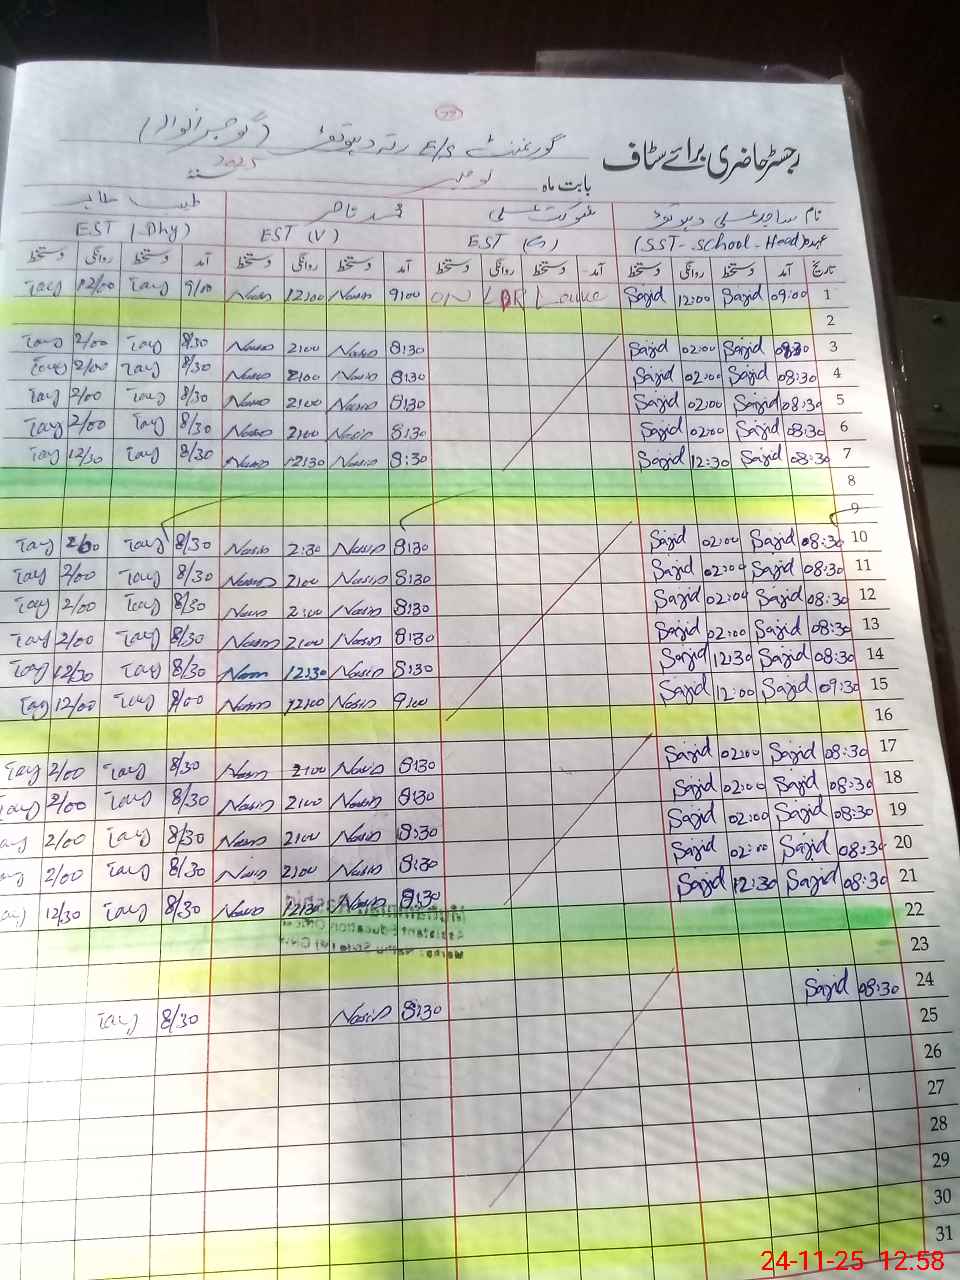 22
رجسٹر حاضری برائے سٹاف
گورنمنٹ E/S رتہ دہوتڑ (گوجرانوالہ)
بابت ماہ نومبر 2025
نام ساجد علی شوکت علی محمد ناصر طیب طاہر
عہدہ (SST-School-Head) EST EST (V) EST (Phy)
تاریخ آمد دستخط روانگی دستخط آمد دستخط روانگی دستخط آمد دستخط روانگی دستخط آمد دستخط روانگی دستخط
1 09:00 Sajid 12:00 Sajid ON LPR Leave 9:00 Nasir 12:00 Nasir 9/00 Tay 12/00 Tay
2
3 08:30 Sajid 02:00 Sajid 8:30 Nasir 2:00 Nasir 8/30 Tay 2/00 Tay
4 08:30 Sajid 02:00 Sajid 8:30 Nasir 2:00 Nasir 8/30 Tay 2/00 Tay
5 08:30 Sajid 02:00 Sajid 8:30 Nasir 2:00 Nasir 8/30 Tay 2/00 Tay
6 08:30 Sajid 02:00 Sajid 8:30 Nasir 2:00 Nasir 8/30 Tay 2/00 Tay
7 08:30 Sajid 12:30 Sajid 8:30 Nasir 12:30 Nasir 8/30 Tay 12/30 Tay
8
9
10 08:30 Sajid 02:00 Sajid 8:30 Nasir 2:30 Nasir 8/30 Tay 2/00 Tay
11 08:30 Sajid 02:00 Sajid 8:30 Nasir 2:00 Nasir 8/30 Tay 2/00 Tay
12 08:30 Sajid 02:00 Sajid 8:30 Nasir 2:00 Nasir 8/30 Tay 2/00 Tay
13 08:30 Sajid 02:00 Sajid 8:30 Nasir 2:00 Nasir 8/30 Tay 2/00 Tay
14 08:30 Sajid 12:30 Sajid 8:30 Nasir 12:30 Nasir 8/30 Tay 12/30 Tay
15 09:30 Sajid 12:00 Sajid 9:00 Nasir 12:00 Nasir 8/00 Tay 12/00 Tay
16
17 08:30 Sajid 02:00 Sajid 8:30 Nasir 2:00 Nasir 8/30 Tay 2/00 Tay
18 08:30 Sajid 02:00 Sajid 8:30 Nasir 2:00 Nasir 8/30 Tay 2/00 Tay
19 08:30 Sajid 02:00 Sajid 8:30 Nasir 2:00 Nasir 8/30 Tay 2/00 Tay
20 08:30 Sajid 02:00 Sajid 8:30 Nasir 2:00 Nasir 8/30 Tay 2/00 Tay
21 08:30 Sajid 12:30 Sajid 8:30 Nasir 12:30 Nasir 8/30 Tay 12/30 Tay
22
23
24 08:30 Sajid 8:30 Nasir 8/30 Tay
25
26
27
28
29
30
31
24-11-25 12:58